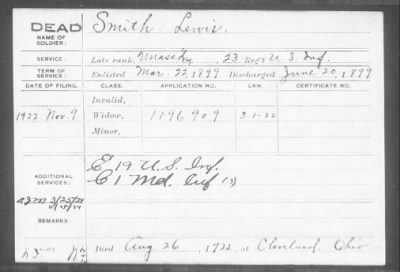 DEAD
NAME OF SOLDIER: Smith Lewis.
SERVICE: Late rank, Unas'd 23 Reg't U S Inf.
TERM OF SERVICE: Enlisted Mar. 22, 1899 Discharged June 20, 1899
DATE OF FILING. CLASS. APPLICATION NO. LAW. CERTIFICATE NO.
Invalid,
1922 Nov 9 Widow, 1196909 3-1-22
Minor,
ADDITIONAL SERVICES: E 19 U.S. Inf.
C 1 Md. Inf
REMARKS:
Died Aug 26, 1922, at Cleveland, Ohio